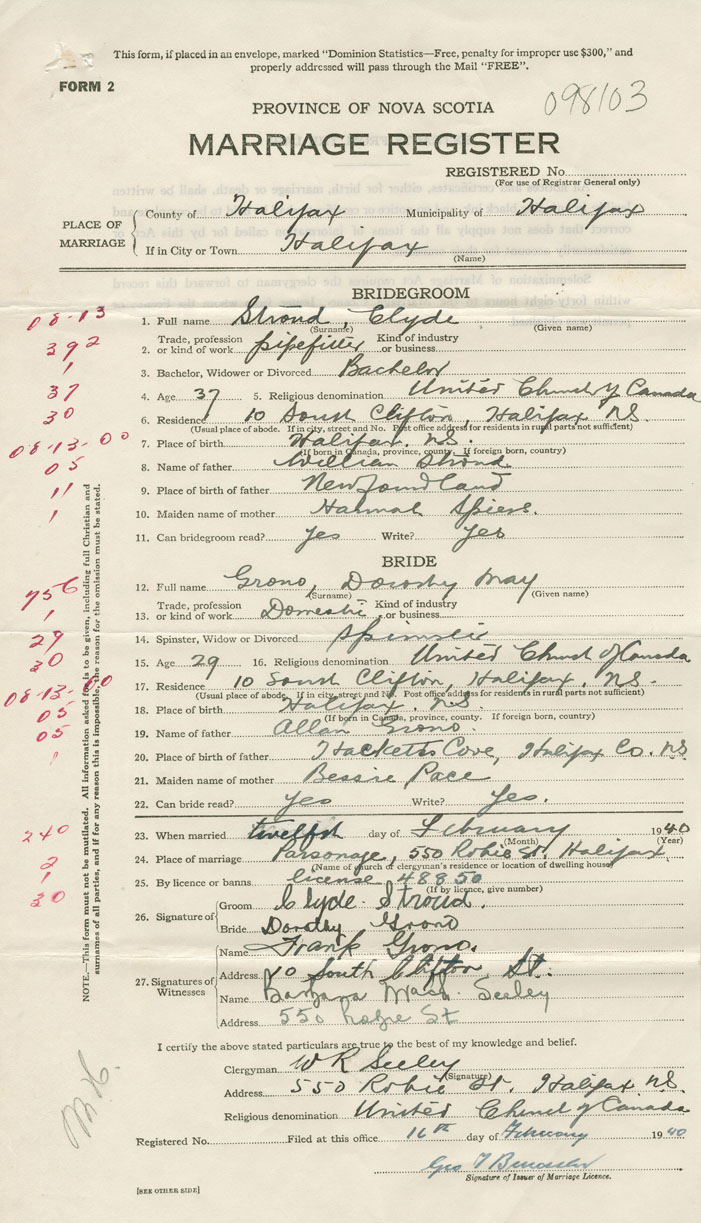 This form, if placed in an envelope, marked "Dominion Statistics—Free, penalty for improper use $300," and
properly addressed will pass through the Mail "FREE".
FORM 2
098103
PROVINCE OF NOVA SCOTIA
MARRIAGE REGISTER
REGISTERED No.
(For use of Registrar General only)
PLACE OF MARRIAGE
County of Halifax Municipality of Halifax
If in City or Town Halifax
(Name)
BRIDEGROOM
08-13
1. Full name Stroud, Clyde
(Surname) (Given name)
392
2. Trade, profession or kind of work pipefitter Kind of industry or business
1
3. Bachelor, Widower or Divorced Bachelor
37
4. Age 37 5. Religious denomination United Church of Canada
30
6. Residence 10 South Clifton, Halifax N.S.
(Usual place of abode. If in city, street and No. Post office address for residents in rural parts not sufficient)
08-13-00
7. Place of birth Halifax, N.S.
(If born in Canada, province, county. If foreign born, country)
05
8. Name of father William Stroud
11
9. Place of birth of father Newfoundland
1
10. Maiden name of mother Hannah Spiers.
11. Can bridegroom read? yes Write? yes
BRIDE
756
12. Full name Grono, Dorothy May
(Surname) (Given name)
1
13. Trade, profession or kind of work Domestic Kind of industry or business
29
14. Spinster, Widow or Divorced Spinster
30
15. Age 29 16. Religious denomination United Church of Canada
08-13-00
17. Residence 10 South Clifton, Halifax, N.S.
(Usual place of abode. If in city, street and No. Post office address for residents in rural parts not sufficient)
05
18. Place of birth Halifax, N.S.
(If born in Canada, province, county. If foreign born, country)
05
19. Name of father Allan Grono.
1
20. Place of birth of father Hacketts Cove, Halifax Co. N.S.
21. Maiden name of mother Bessie Pace
22. Can bride read? yes Write? yes.
240
23. When married twelfth day of February 1940
(Month) (Year)
2
24. Place of marriage Parsonage, 550 Robie St. Halifax
(Name of church or clergyman's residence or location of dwelling house)
1
30
25. By licence or banns license 48850
(If by licence, give number)
26. Signature of
Groom Clyde Stroud.
Bride Dorothy Grono
27. Signatures of Witnesses
Name Frank Grono.
Address 10 South Clifton St.
Name Barbara Seeley
Address 550 Robie St
NOTE.—This form must not be mutilated. All information asked for is to be given, including full Christian and
surnames of all parties, and if for any reason this is impossible, the reason for the omission must be stated.
I certify the above stated particulars are true to the best of my knowledge and belief.
Clergyman W R Seeley
(Signature)
Address 550 Robie St. Halifax N.S.
Religious denomination United Church of Canada
Registered No. Filed at this office 16th day of February 1940
Geo
Signature of Issuer of Marriage Licence.
[SEE OTHER SIDE]